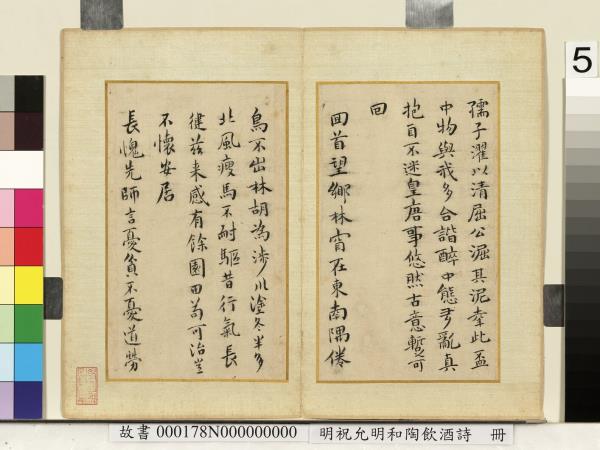 孺子濯以清屈公淈其泥奉此盃
中物與我多合諧醉中態多亂真
抱自不迷皇唐事悠然古意暫可
回
回首望鄉林宵在東南隅倦
鳥不出林胡為涉川塗冬半多
北風瘦馬不耐驅昔行氣長
健茲來感有餘園田苟可治豈
不懷安居
長愧先師言憂貧不憂道勞
5
故書 000178N000000000 明祝允明和陶飲酒詩 冊